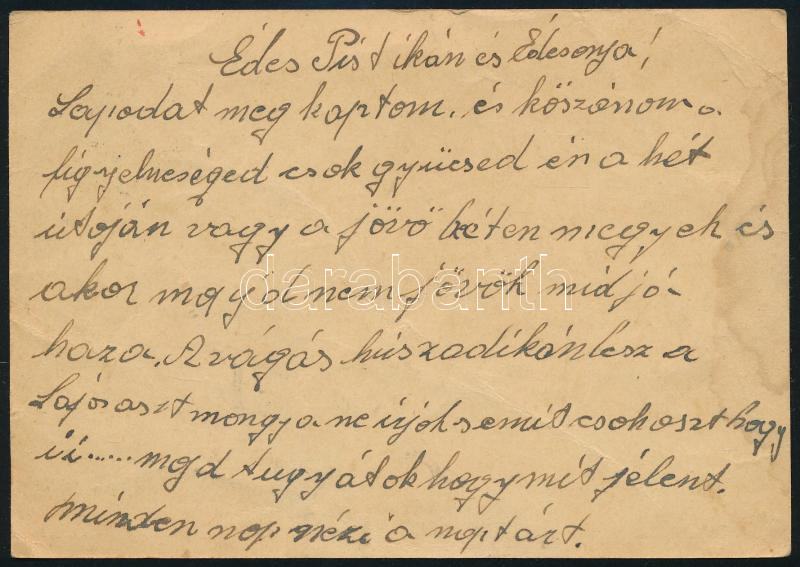 Édes Pistikán és Édesonja!
Lapodat meg kaptom. és köszönom a
figyelmeséged csok gyücsed én a hét
útoján vagy a jövö héten megyek és
akor magyd nem jövök mid jó-
haza. A vágás húszadikán lesz a
Lajos aszt mongya ne irjol semit csok oszt hogy
ii...... mgd tugyátok hogy mit jelent.
minden nop nézi a noptárt.
darabanth